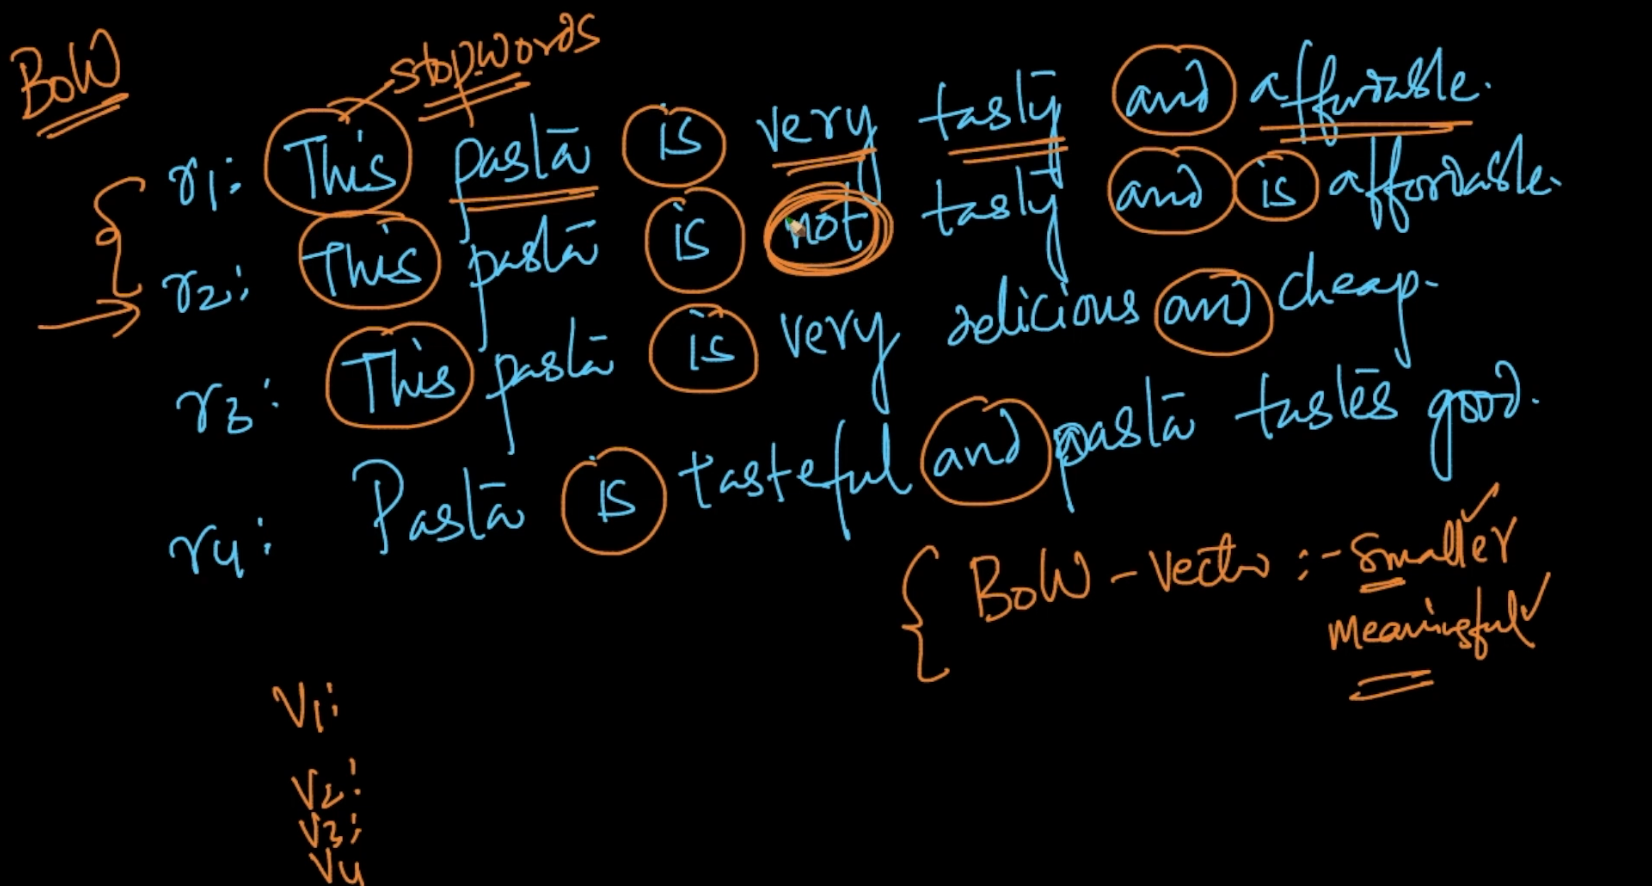 BoW
stopwords
r1: This pasta is very tasty and affordable.
r2: This pasta is not tasty and is affordable.
r3: This pasta is very delicious and cheap.
r4: Pasta is tasteful and pasta tastes good.
BoW - Vector :- smaller
meaningful
V1:
V2:
V3:
V4